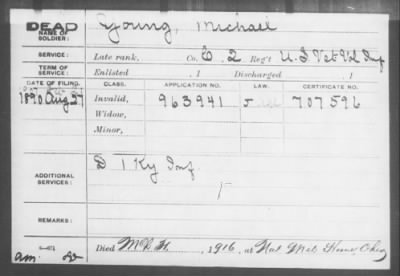 DEAD
NAME OF SOLDIER: Young, Michael
SERVICE: Late rank, Co. E. 2 Reg't U.S. Vet Vol Inf
TERM OF SERVICE: Enlisted , 1 Discharged , 1
DATE OF FILING. CLASS. APPLICATION NO. LAW. CERTIFICATE NO.
1890 Aug 27 Invalid, 963941 J 707596
Widow,
Minor,
ADDITIONAL SERVICES: D 1 Ky Inf.
REMARKS:
Died 1916, at Nat Mil Home Ohio